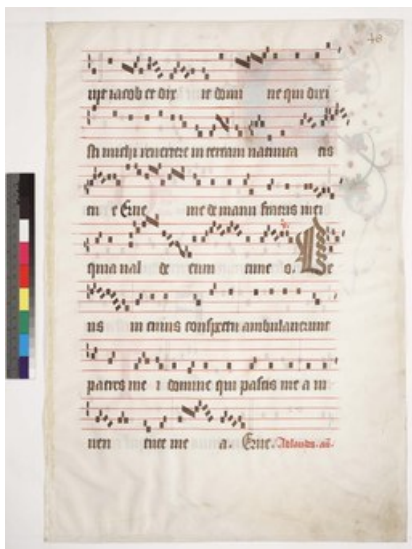 iacob et dix it domi ne qui dixi
sti michi reuertere in terram natiuita tis
tu e Erue me de manu fratris mei
quia ual de eum time o. De
us in cuius conspectu ambulauerunt
patres me i domine qui pascis me a iu
uen tute me a. Erue. Ad laudes. an.